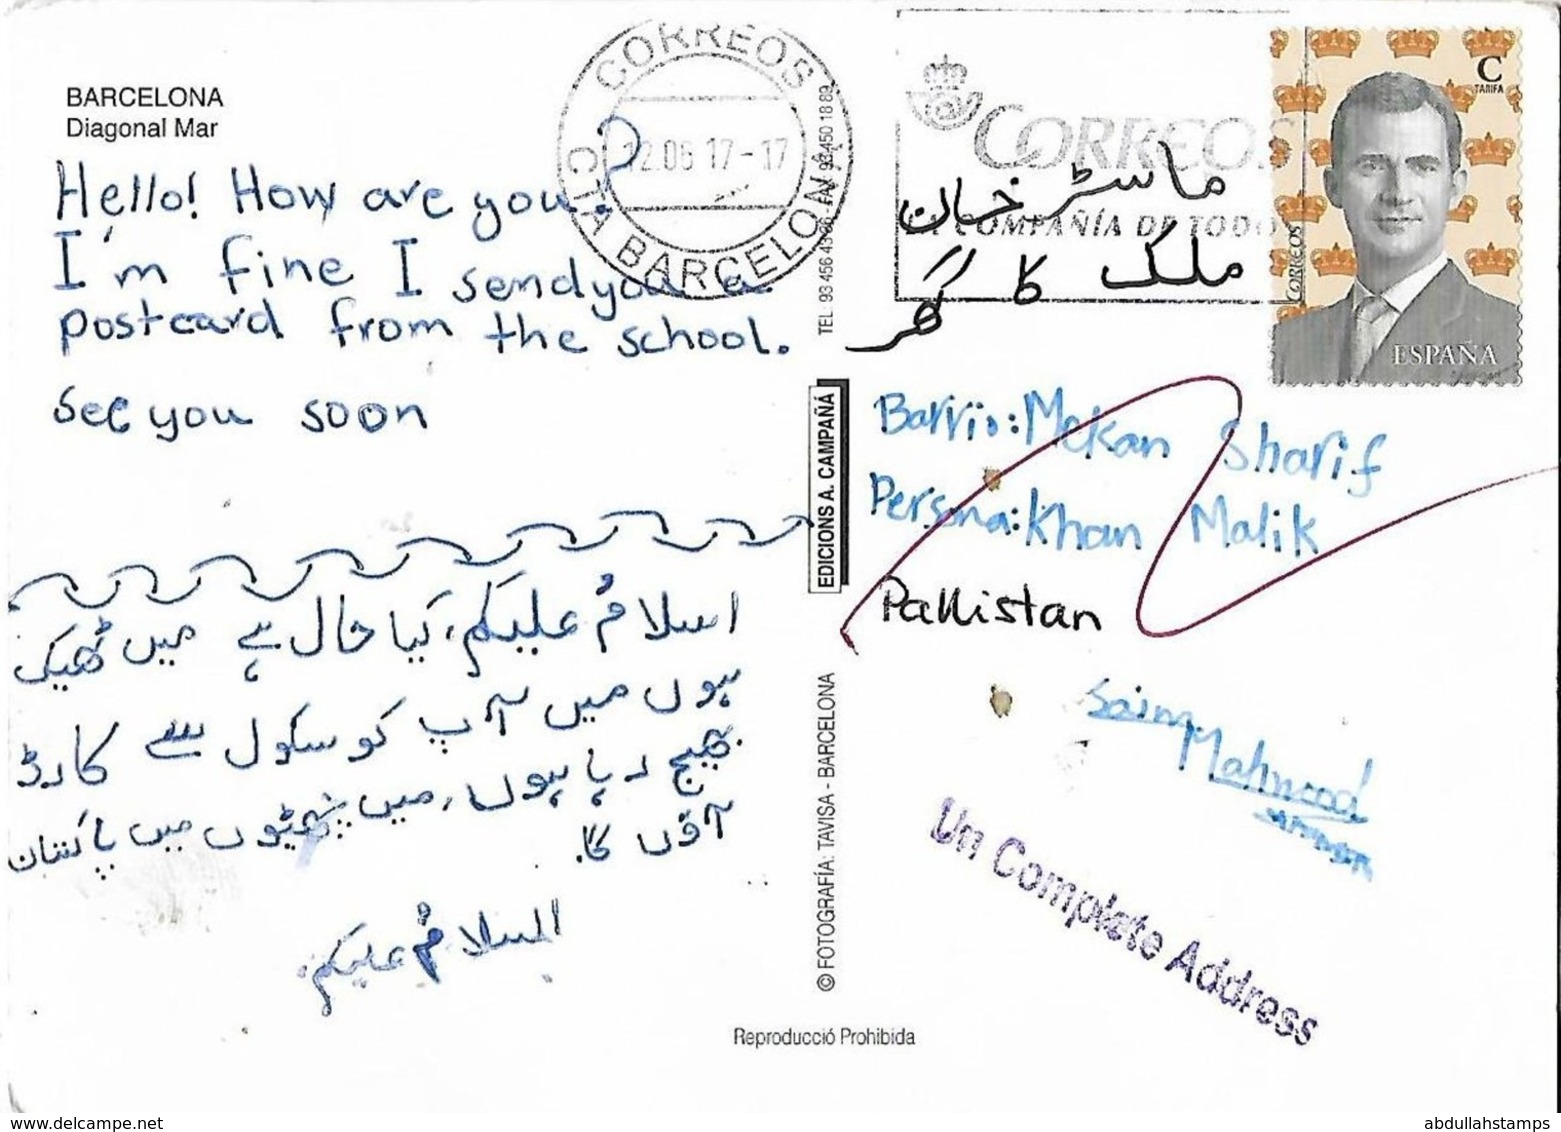 BARCELONA
Diagonal Mar
Hello! How are you?
I'm fine I send you a
postcard from the school.
See you soon
اسلام علیکم، کیا حال ہے میں ٹھیک
ہوں میں آپ کو سکول سے کارڈ
بھیج رہا ہوں، میں چھٹیوں میں پاکستان
آؤں گا۔
السلام علیکم،
CORREOS
12.06 17-17
CTA BARCELONA
CORREOS
COMPAÑÍA DE TODOS
C
TARIFA
CORREOS
ESPAÑA
ماسٹر خان
ملک کا گھر
Barrio: Mekan Sharif
Persona: Khan Malik
Pakistan
Saim Mahmood
Un Complete Address
TEL. 93 456 43 36 - FAX 93 450 18 89
EDICIONS A. CAMPAÑÁ
© FOTOGRAFÍA: TAVISA - BARCELONA
Reproducció Prohibida
abdullahstamps